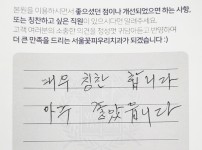 본원을 이용하시면서 좋으셨던 점이나 개선되었으면 하는 사항,
또는 칭찬하고 싶은 직원이 있으시다면 알려주세요.
고객 여러분의 소중한 의견을 정성껏 귀담아듣고 반영하여
더 큰 만족을 드리는 서울꽃피우리치과가 되겠습니다 :)
매우 칭찬 합니다
아주 좋았습니다